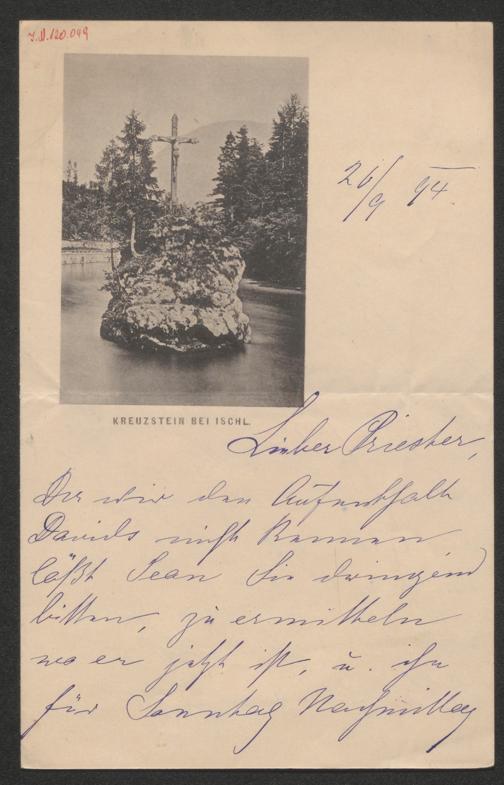 I.N. 120.049
26/9 94.
KREUZSTEIN BEI ISCHL.
Lieber Priester,
Da wir den Aufenthalt
Davids nicht kennen
läßt Jean Sie dringend
bitten, zu ermitteln
wo er jetzt ist, u. ihn
für Sonntag Nachmittag